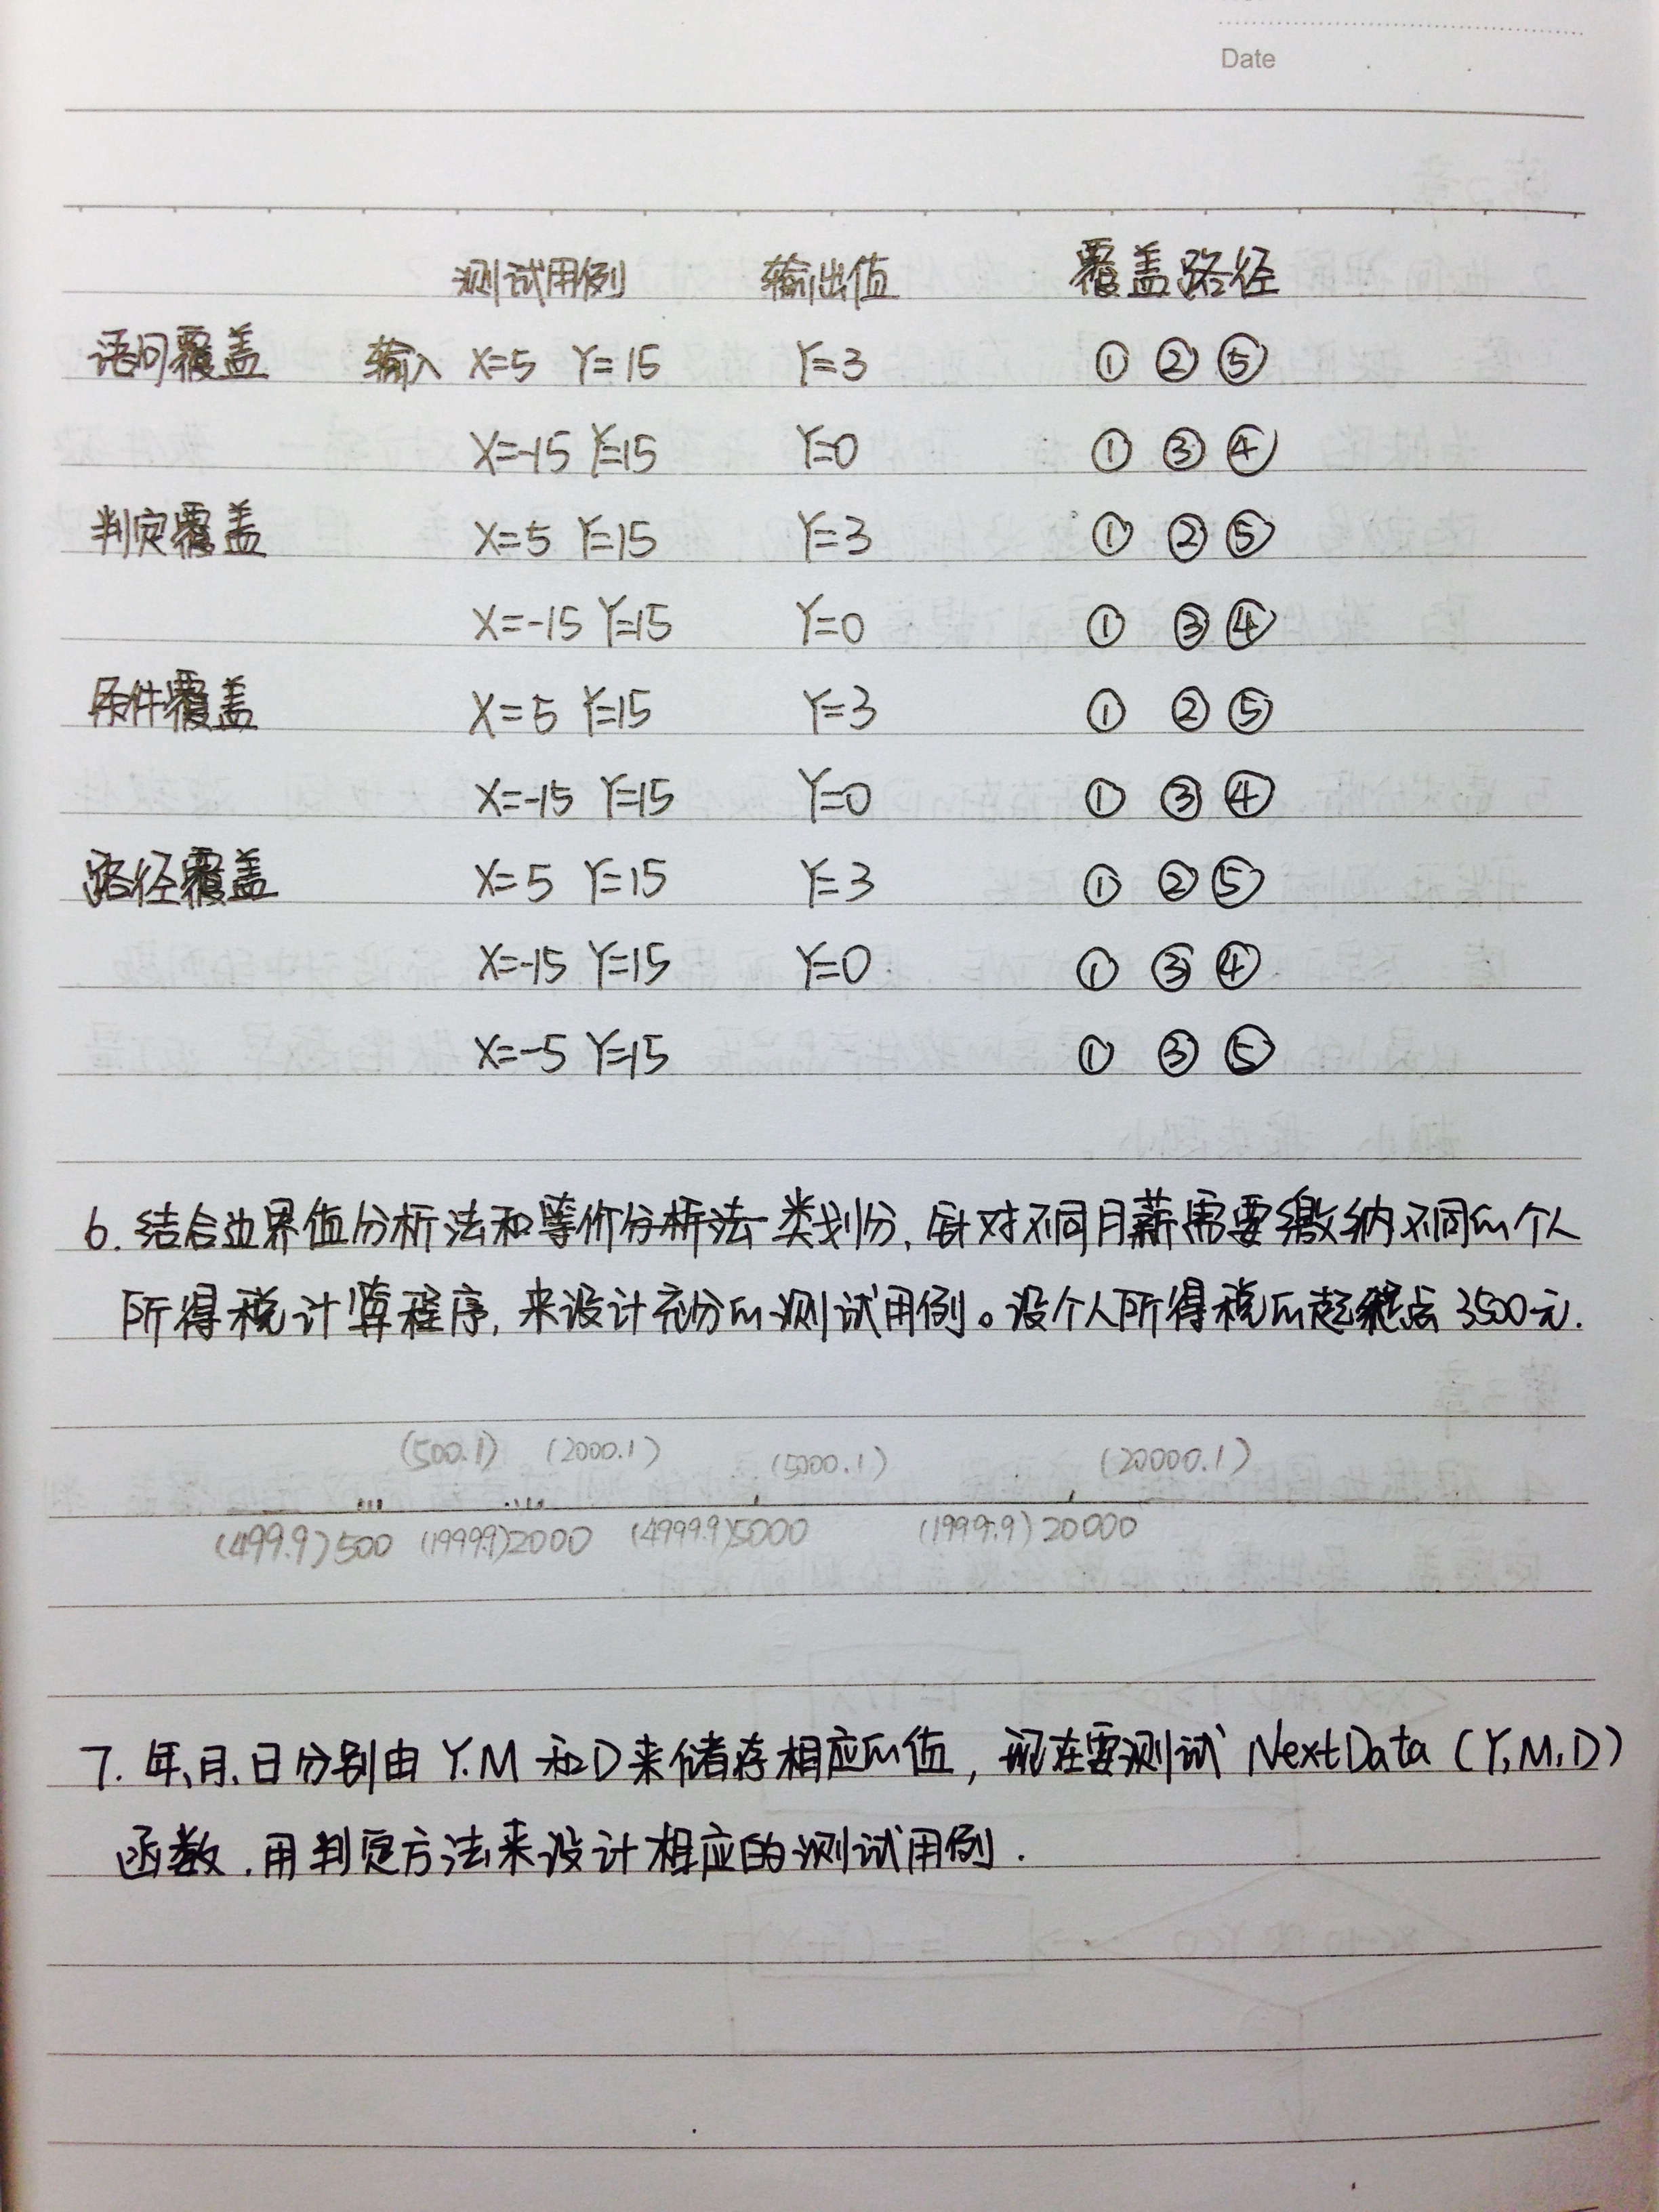 Date
测试用例 输出值 覆盖路径
语句覆盖 输入 X=5 Y=15 Y=3 ① ② ⑤
X=-15 Y=15 Y=0 ① ③ ④
判定覆盖 X=5 Y=15 Y=3 ① ② ⑤
X=-15 Y=15 Y=0 ① ③ ④
条件覆盖 X=5 Y=15 Y=3 ① ② ⑤
X=-15 Y=15 Y=0 ① ③ ④
路径覆盖 X=5 Y=15 Y=3 ① ② ⑤
X=-15 Y=15 Y=0 ① ③ ④
X=-5 Y=15 ① ③ ⑤
6. 结合边界值分析法和等价分析法类划分,针对不同月薪需要缴纳不同的个人
所得税计算程序,来设计充分的测试用例。设个人所得税的起税点3500元.
(500.1) (2000.1) (5000.1) (20000.1)
(499.9)500 (1999.9)2000 (4999.9)5000 (1999.9)20000
7. 年、月、日分别由Y.M和D来储存相应的值,现在要测试NextData(Y,M,D)
函数.用判定方法来设计相应的测试用例.